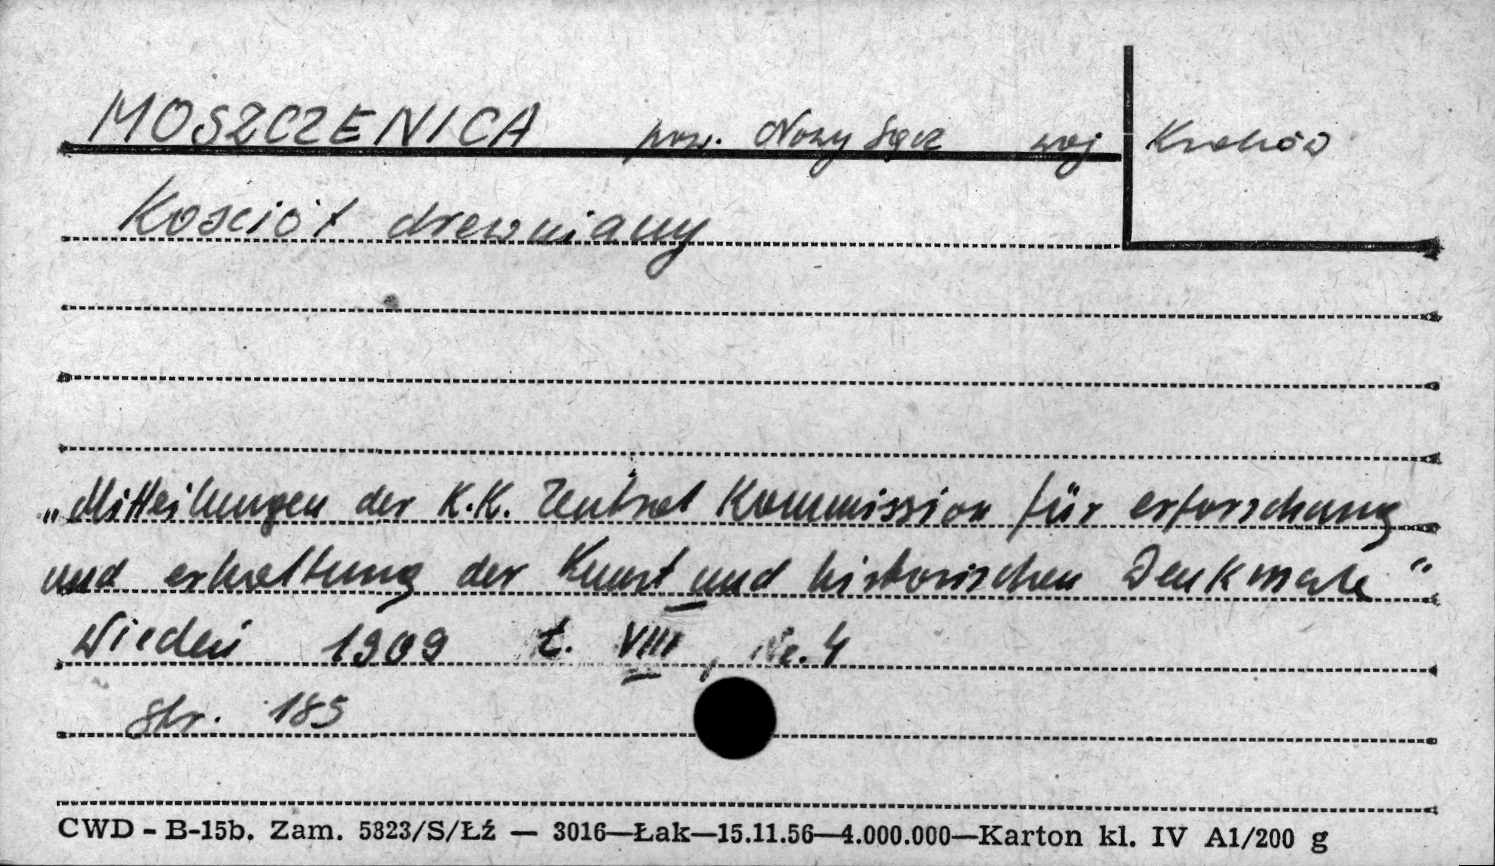 MOSZCZENICA pow. Nowy Sącz woj Kraków
Kościół drewniany
„Mitteilungen der K.K. Zentral Kommission für erforschung
und erhaltung der Kunst und historischen Denkmale"
Wiedeń 1909 t. VIII, Nr. 4
Str. 185
CWD - B-15b. Zam. 5823/S/Łź — 3016—Łak—15.11.56—4.000.000—Karton kl. IV A1/200 g